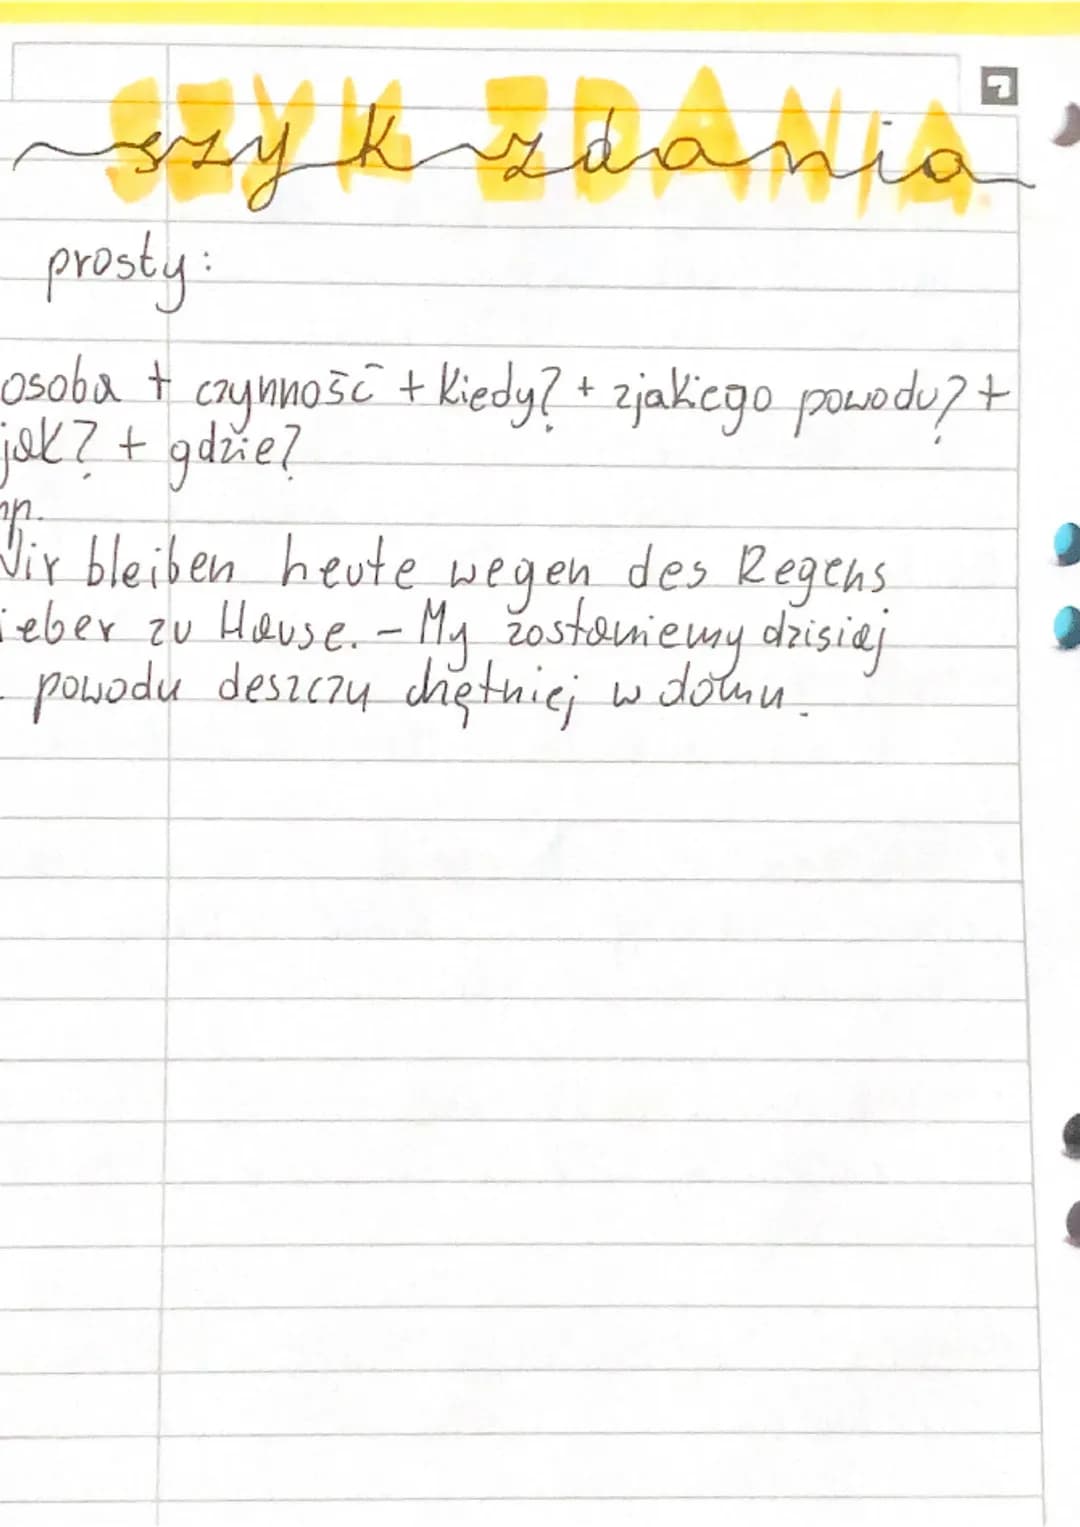 SZYK ZDANIA
szyk zdania
prosty:
osoba + czynność + kiedy? + zjakiego powodu? +
jak? + gdzie?
np.
Wir bleiben heute wegen des Regens
ieber zu Hause. - My zostaniemy dzisiaj
powodu deszczu chętniej w domu.